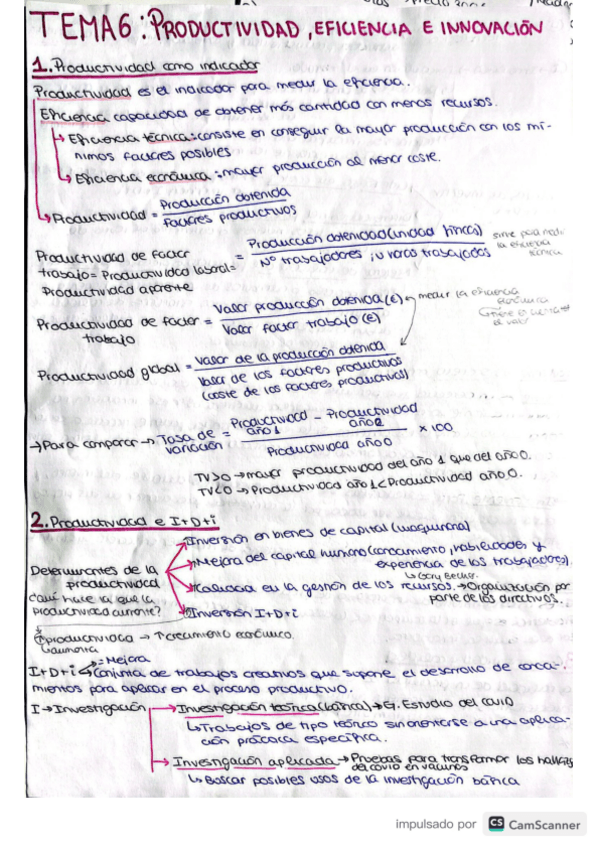 TEMA 6: PRODUCTIVIDAD, EFICIENCIA E INNOVACIÓN
1. Productividad como indicador
Productividad es el indicador para medir la eficiencia.
Eficiencia capacidad de obtener más cantidad con menos recursos.
↳ Eficiencia técnica: consiste en conseguir la mayor producción con los mí-
nimos factores posibles
↳ Eficiencia económica: mayor producción al menor coste.
↳ Productividad = Producción obtenida
factores productivos
Productividad de factor
trabajo = Productividad laboral =
Productividad aparente
Producción obtenida (unidad física)
Nº trabajadores, u horas trabajadas
sirve para medir
la eficiencia
técnica
Productividad de factor =
trabajo
Valor producción obtenida (€)
Valor factor trabajo (€)
medir la eficiencia
económica
el valor
Productividad global = Valor de la producción obtenida
Valor de los factores productivos
(coste de los factores productivos)
→ Para comparar → Tasa de =
variación
Productividad - Productividad
año 1 año 0
Productividad año 0
× 100
TV>0 → mayor productividad del año 1 que del año 0.
TV<0 → Productividad año 1 < Productividad año 0.
2. Productividad e I+D+i
Determinantes de la
productividad
¿qué hace la que la
productividad aumente?
Inversión en bienes de capital (maquinaria)
Mejora del capital humano (conocimiento, habilidades y
experiencia de los trabajadores)
↳ Gary Becker.
Calidad en la gestión de los recursos. → Organización por
parte de los directivos.
Inversión I+D+i
↑ productividad → ↑ crecimiento económico.
↳ aumenta
= Mejora
I+D+i ↳ Conjunto de trabajos creativos que supone el desarrollo de conoci-
mientos para aplicar en el proceso productivo.
I → Investigación
→ Investigación teórica (básica) → Ej. Estudio del covid
↳ Trabajos de tipo teórico sin orientarse a una aplica-
ción práctica específica.
→ Investigación aplicada → Pruebas para transformar los hallazgos
del covid en vacunas
↳ Buscar posibles usos de la investigación básica
impulsado por CS CamScanner